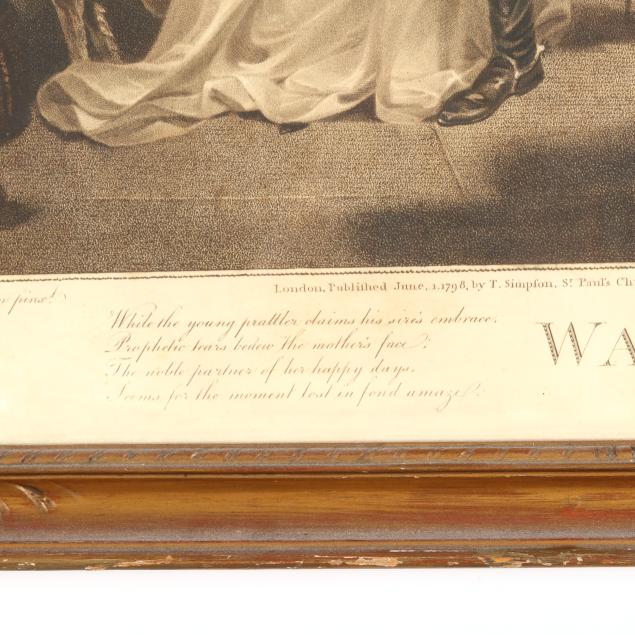 pinx.t
London, Publiſhed June, 1. 1798, by T. Simpſon, S.t Paul's Ch
While the young prattler claims his sire's embrace,
Prophetic tears bedew the mother's face:
The noble partner of her happy days,
Seems for the moment lost in fond amaze:
WA